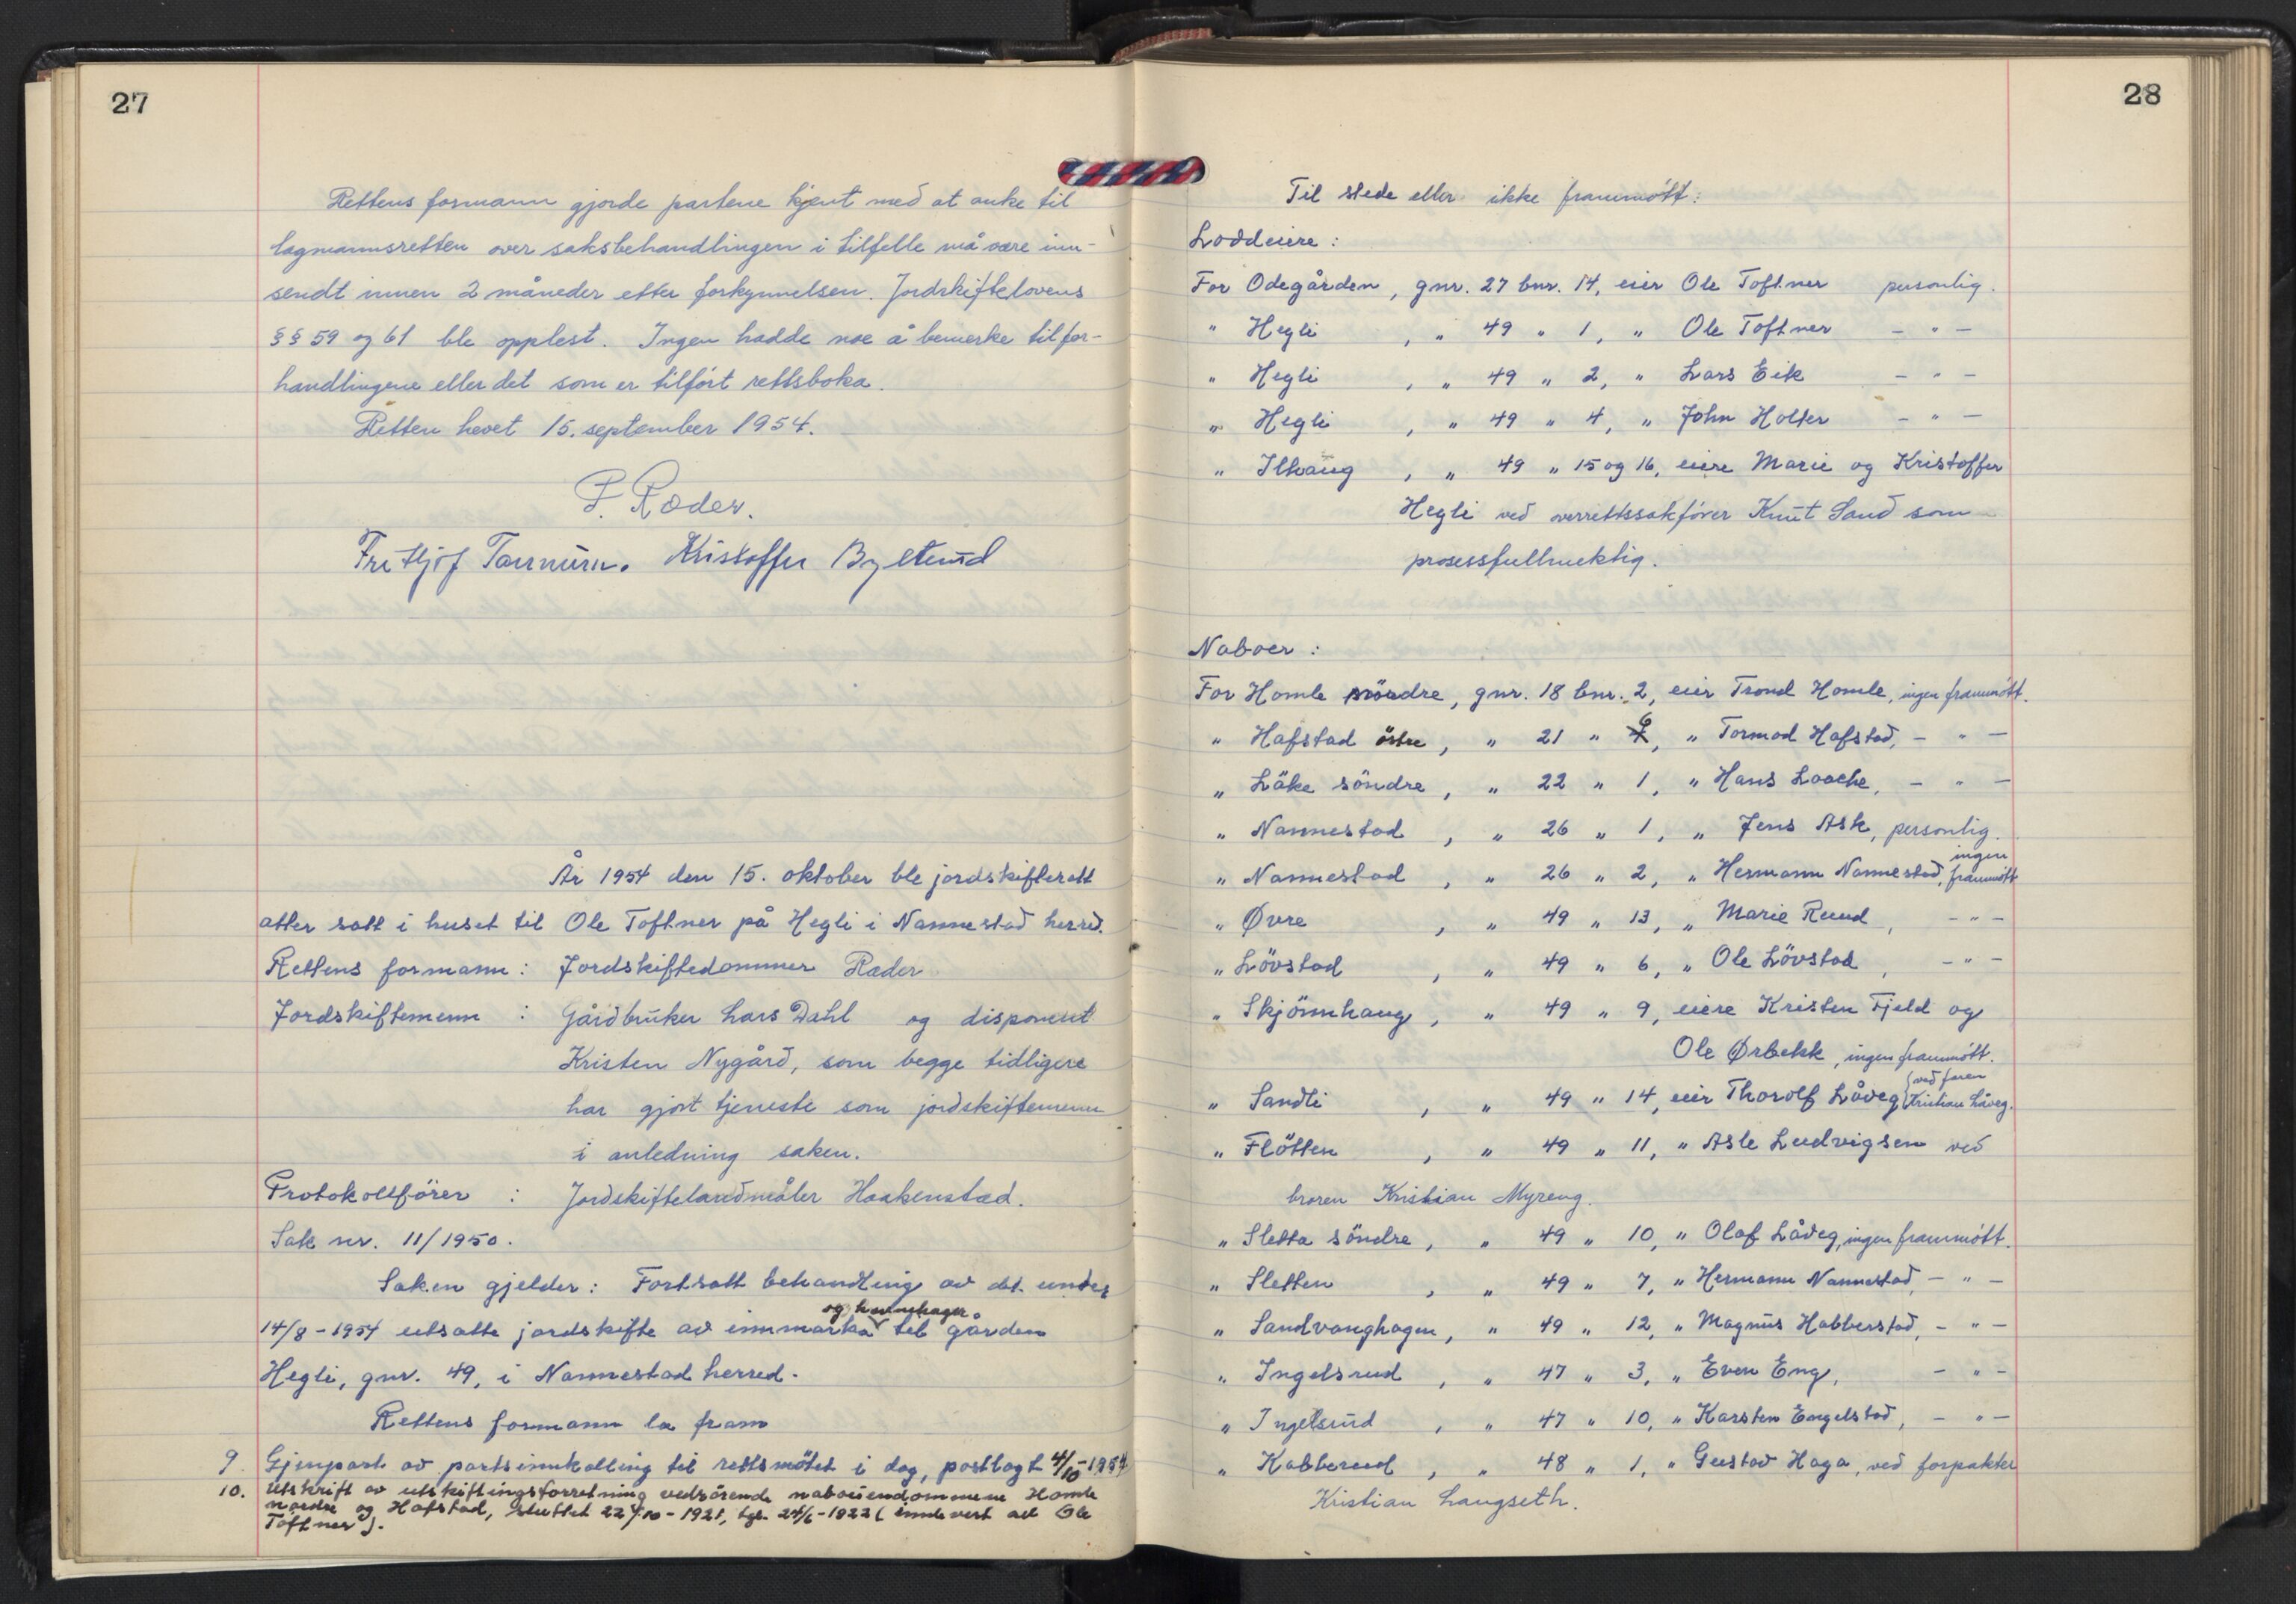 27
Rettens formann gjorde partene kjent med at anke til
lagmannsretten over saksbehandlingen i tilfelle må være inn-
sendt innen 2 måneder etter forkynnelsen. Jordskiftelovens
§§ 59 og 61 ble opplest. Ingen hadde noe å bemerke til for-
handlingene eller det som er tilført rettsboka.
Retten hevet 15. september 1954.
P. Ræder.
Fritjof Tannum. Kristoffer Bylterud
År 1954 den 15. oktober ble jordskifterett
atter satt i huset til Ole Toftner på Hegli i Nannestad herred.
Rettens formann: Jordskiftedommer Ræder
Jordskiftemenn : Gårdbruker Lars Dahl og disponent
Kristen Nygård, som begge tidligere
har gjort tjeneste som jordskiftemenn
i anledning saken.
Protokollfører : Jordskiftelandmåler Haakenstad.
Sak nr. 11/1950.
Saken gjelder: Fortsatt behandling av det under
og havnehager
14/8-1954 utsatte jordskifte av innmarka til gården
Hegli, gnr. 49, i Nannestad herred.
Rettens formann la fram
9. Gjenpart av partsinnkalling til rettsmøtet i dag, postlagt 4/10-1954
10. Utskrift av utskiftingsforretning vedrørende naboeiendommene Homle
nordre og Hafstad, sluttet 22/10-1921, tgl. 24/6-1922 (innlevert av Ole
Toftner).
28
Til stede eller ikke frammøtt:
Loddeiere:
For Ødegården, gnr. 27 bnr. 14, eier Ole Toftner personlig.
" Hegli , " 49 " 1, " Ole Toftner - " -
" Hegli , " 49 " 2, " Lars Eik - " -
" Hegli , " 49 " 4, " John Holter - " -
" Ilhaug , " 49 " 15 og 16, eiere Marie og Kristoffer
Hegli ved overrettssakfører Knut Sand som
prosessfullmektig.
Naboer:
For Homle nördre, gnr. 18 bnr. 2, eier Trond Homle, ingen frammøtt.
" Hafstad östre, " 21 " 6, " Tormod Hafstad, - " -
" Låke söndre, " 22 " 1, " Hans Laache, - " -
" Nannestad , " 26 " 1, " Jens Ask, personlig.
" Nannestad , " 26 " 2, " Hermann Nannestad, ingen frammøtt
" Øvre , " 49 " 13, " Marie Ruud, - " -
" Lövstad , " 49 " 6, " Ole Lövstad, - " -
" Skjönnhaug, " 49 " 9, eiere Kristen Fjeld og
Ole Ørbekk, ingen frammøtt.
" Sandli , " 49 " 14, eier Thorolf Låveg (ved faren Kristian Låveg.
" Flötten , " 49 " 11, " Asle Ludvigsen ved
broren Kristian Myreng.
" Sletta söndre, " 49 " 10, " Olaf Låveg, ingen frammøtt.
" Sletten , " 49 " 7, " Hermann Nannestad, - " -
" Sandvanghagen, " 49 " 12, " Magnus Habberstad, - " -
" Ingelsrud , " 47 " 3, " Even Eng, - " -
" Ingelsrud , " 47 " 10, " Karsten Engelstad, - " -
" Kabberud , " 48 " 1, " Gustav Haga, ved forpakter
Kristian Langseth.